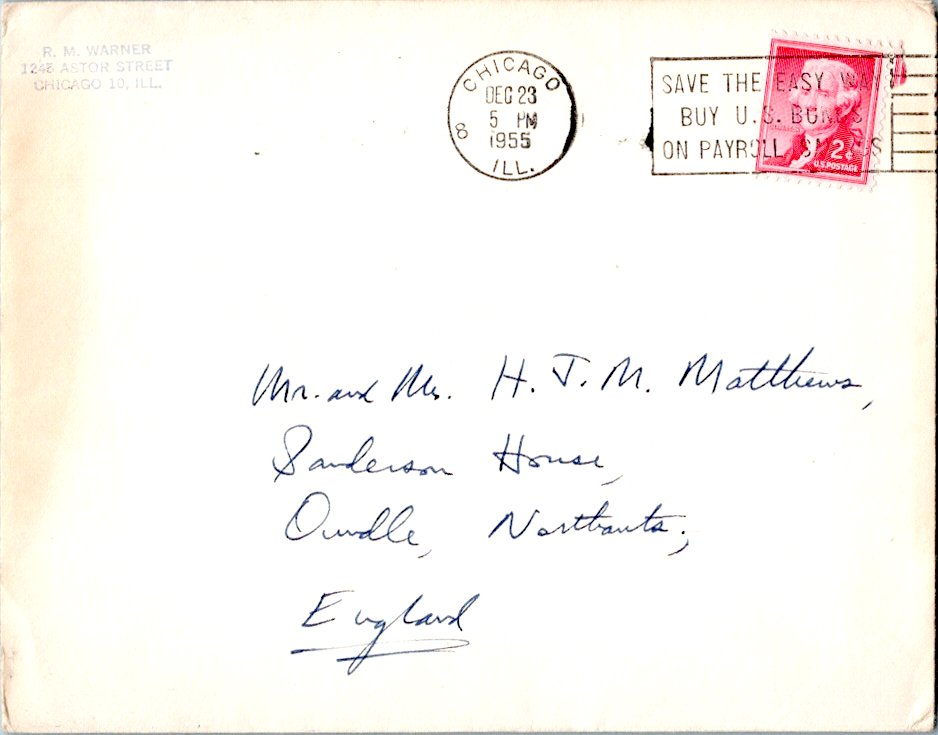 R. M. WARNER
1245 ASTOR STREET
CHICAGO 10, ILL.
CHICAGO
DEC 23
5 PM
1955
ILL.
8
SAVE THE EASY WAY
BUY U.S. BONDS
ON PAYROLL SAVINGS
2¢
U.S. POSTAGE
Mr. and Mrs. H. J. M. Matthews,
Sanderson House,
Oundle, Northants,
England